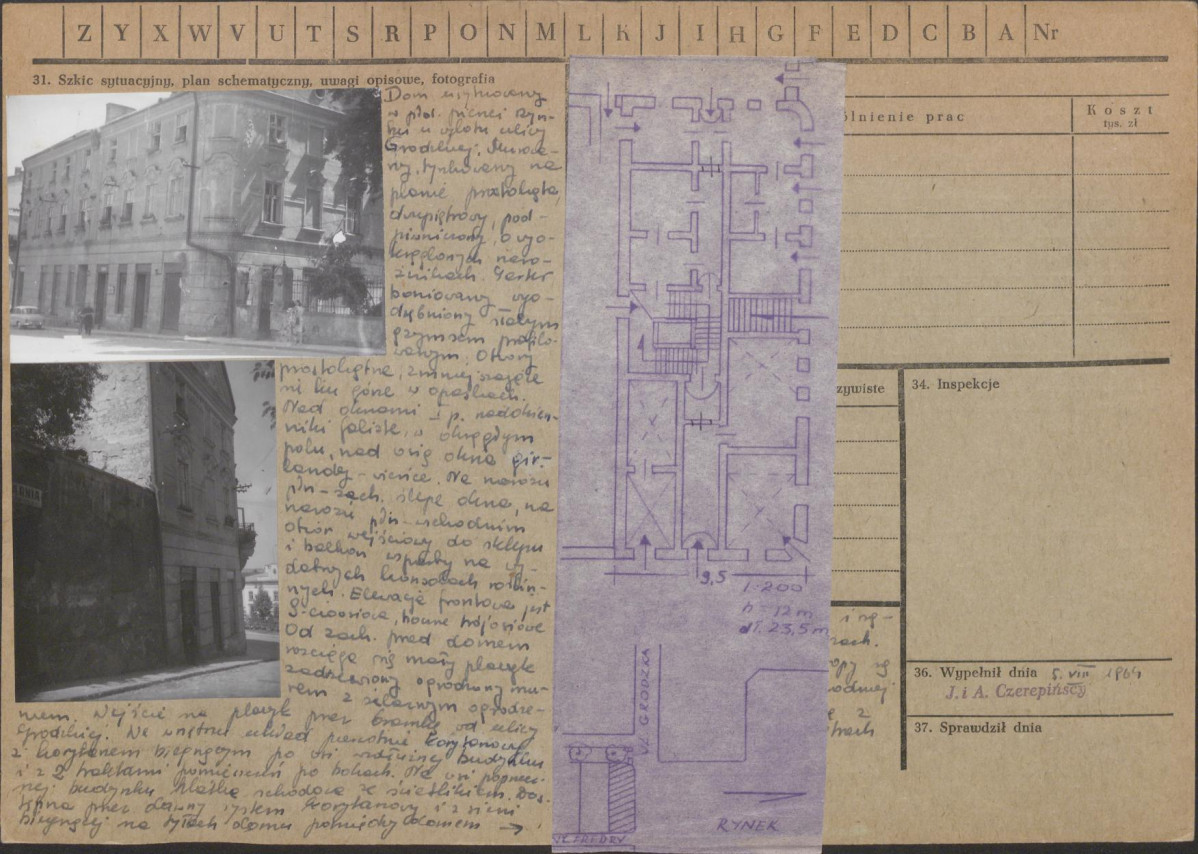 Z Y X W V U T S R P O N M L K J I H G F E D C B A Nr
31. Szkic sytuacyjny, plan schematyczny, uwagi opisowe, fotografia
Dom usytuowany
w płd. pierzei Ryn-
ku u wylotu ulicy
Grodzkiej. Murowa-
ny, tynkowany na
planie prostokąta,
dwupiętrowy, pod-
piwniczony, o wyo-
krąglonych naro-
żnikach. Parter
boniowany wyo-
drębniony
gzymsem profilo-
wanym. Otwory
prostokątne, zmniejszające
się ku górze w opaskach.
Nad oknami I p. naddokien-
niki faliste, w okrągłym
polu, nad osią okna gir-
landy - wieńce. Na narożu
płn-zach. ślepe okna, na
narożu płn-wschodnim
otwór wejściowy do sklepu
i balkon wsparty na wy-
datnych konsolach roślin-
nych. Elewacja frontowa jest
9-cioosiowa, boczne trójosiowe
Od zach. przed domem
rozciąga się mały placyk
zadrzewiony ogrodzony mu-
rem z żelaznym ogrodze-
niem. Wejście na placyk przez bramkę od ulicy
Grodzkiej. We wnętrzu układ pierwotnie korytarzowy
z korytarzem biegnącym po osi wzdłużnej budynku
i z 2 traktami pomieszczeń po bokach. Na osi poprzecz-
nej budynku klatka schodowa ze świetlikiem. Dos-
tępna przez dawny system korytarzowy i z sieni
biegnącej na tyłach domu pomiędzy domem →
9,5
1:200
h = 12 m
dł. 23,5 m
UL. GRODZKA
RYNEK
UL. FREDRY
lnienie prac
Koszt
tys. zł
zywiste
34. Inspekcje
zach.
36. Wypełnił dnia 5. VIII 1964
J. i A. Czerepińscy
37. Sprawdził dnia